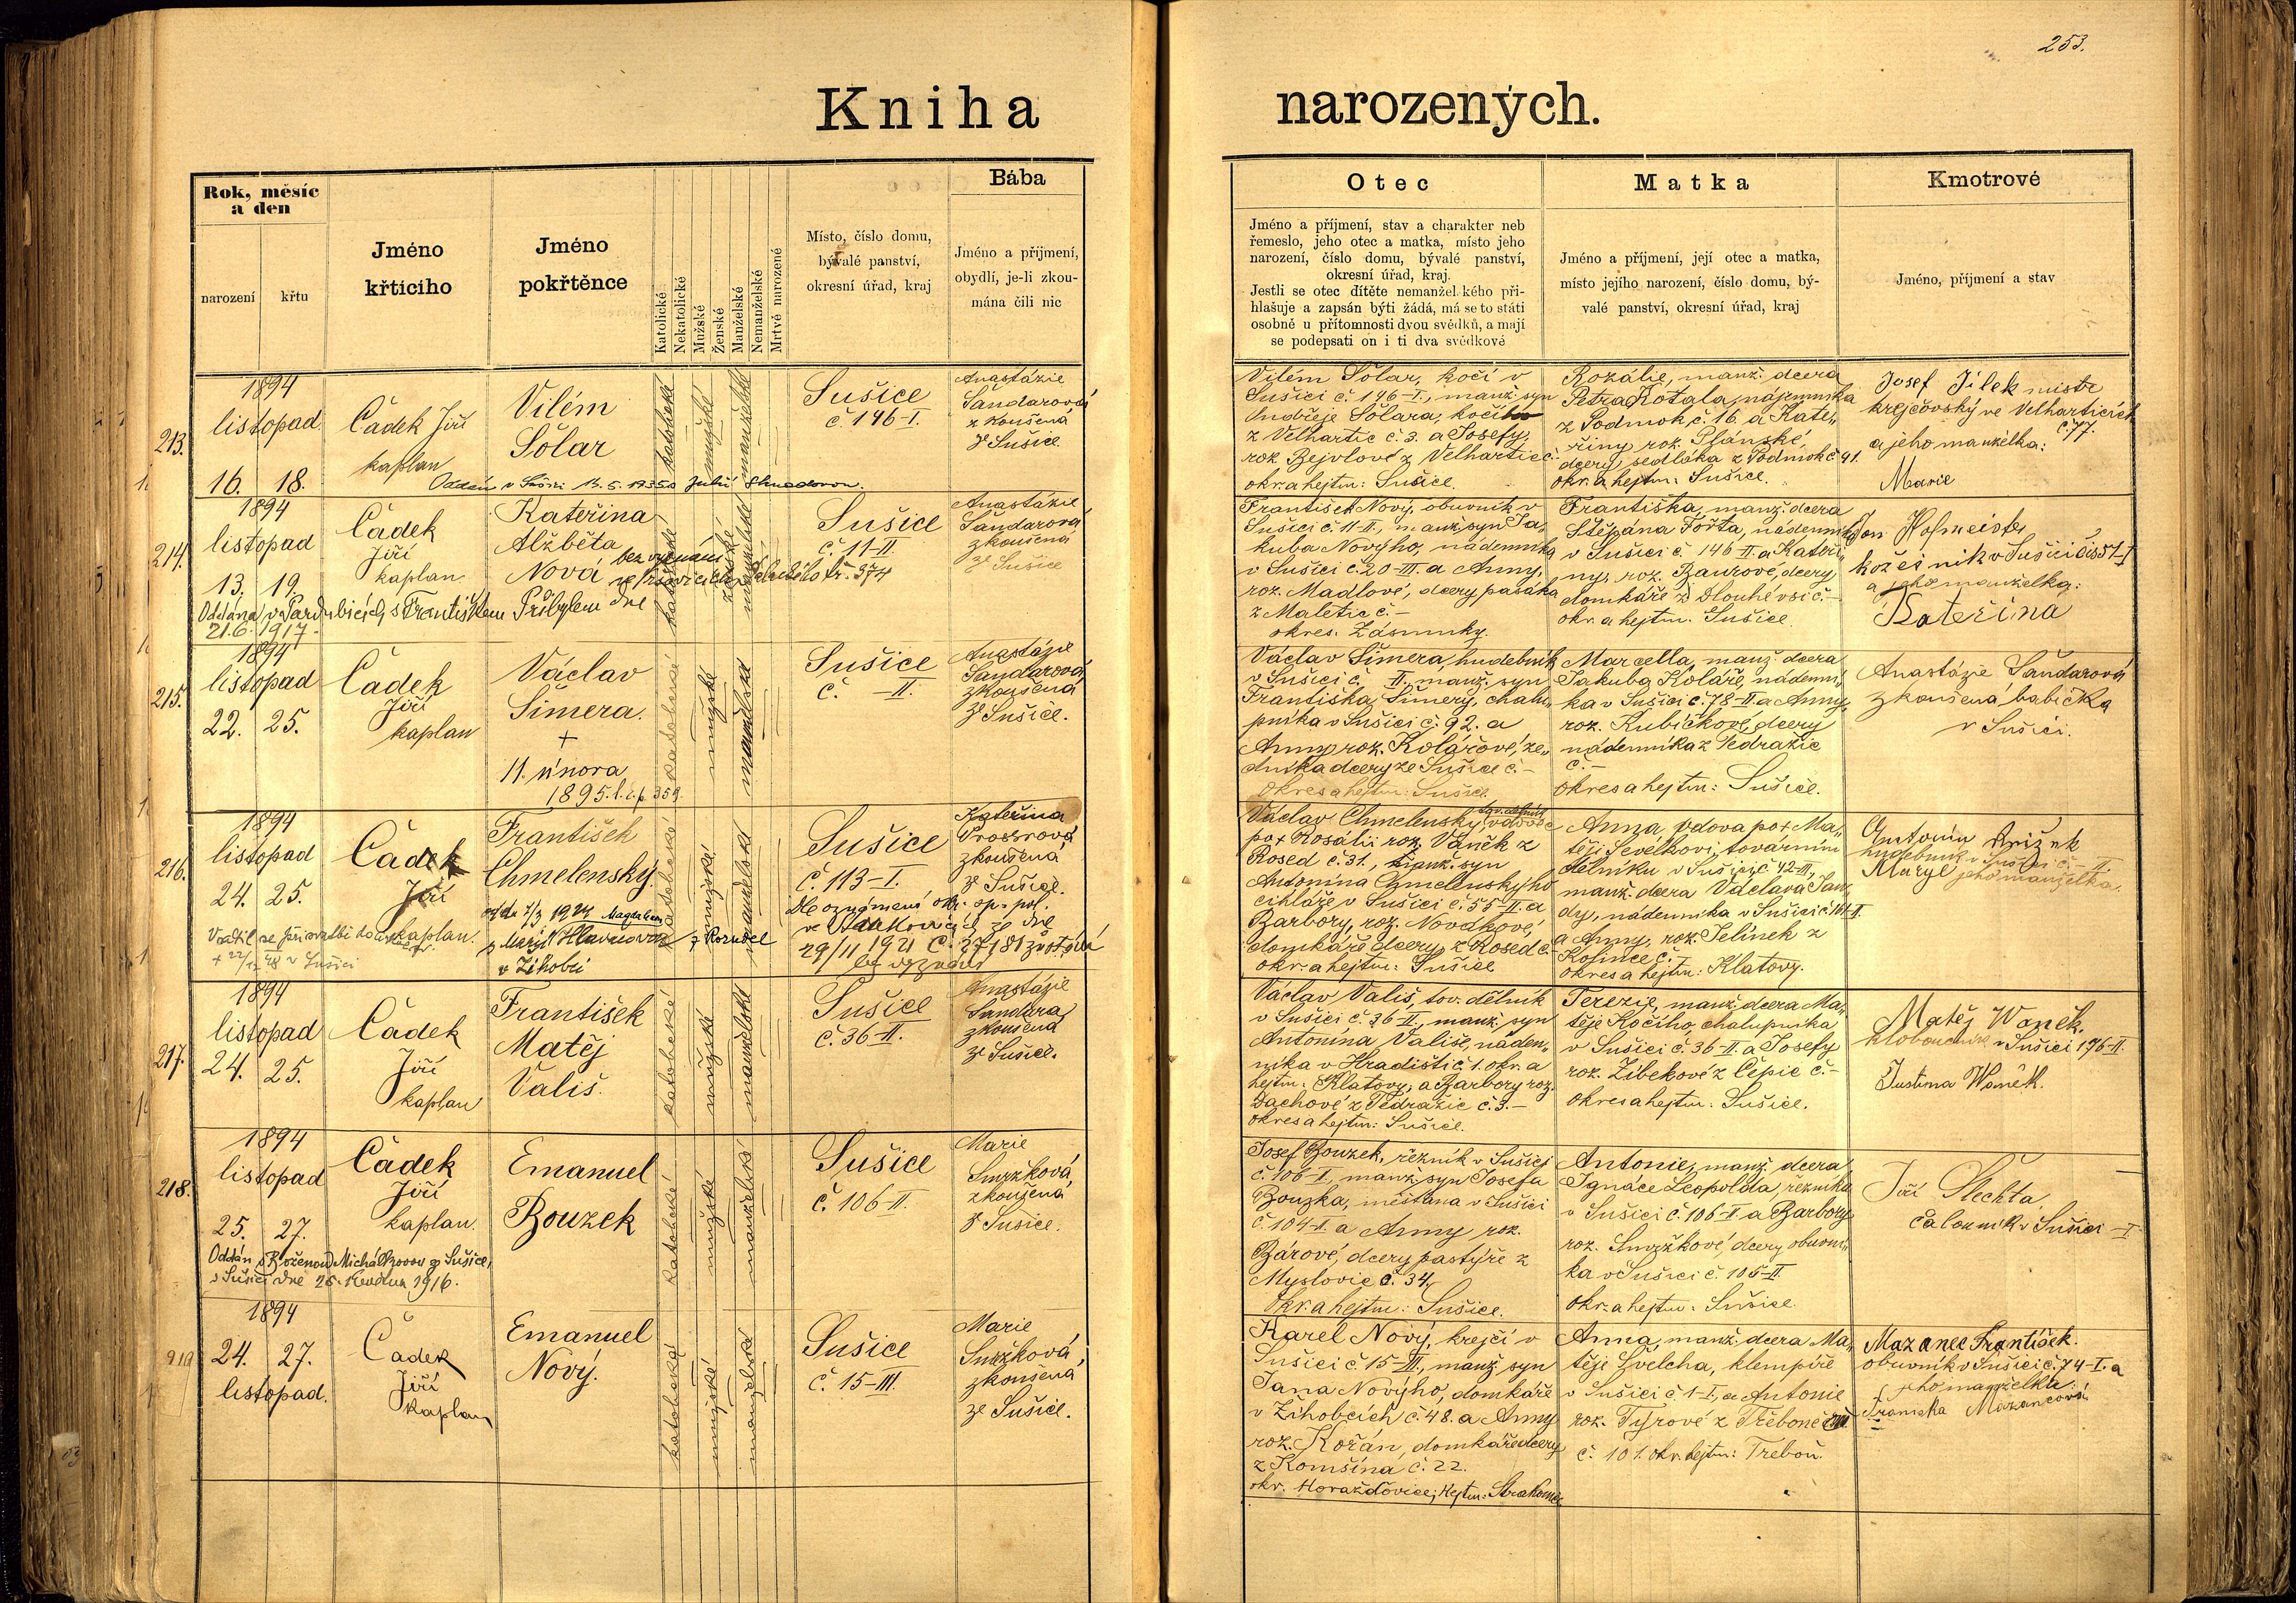 253.
Kniha
narozených.
Rok, měsíc
a den
narození
křtu
Jméno
křticiho
Jméno
pokřtěnce
Katolické
Nekatolické
Mužské
Ženské
Manželské
Nemanželské
Mrtvě narozené
Místo, číslo domu,
bývalé panství,
okresní úřad, kraj
Bába
Jméno a přijmení,
obydlí, je-li zkou-
mána čili nic
Otec
Jméno a příjmení, stav a charakter neb
řemeslo, jeho otec a matka, místo jeho
narození, číslo domu, bývalé panství,
okresní úřad, kraj.
Jestli se otec dítěte nemanžel.kého při-
hlašuje a zapsán býti žádá, má se to státi
osobně u přítomnosti dvou svědků, a mají
se podepsati on i ti dva svědkové
Matka
Jméno a příjmení, její otec a matka,
místo jejího narození, číslo domu, bý-
valé panství, okresní úřad, kraj
Kmotrové
Jméno, příjmení a stav
213.
1894
listopad
16. 18.
Čádek Jiří
kaplan
Vilém
Šolar
katolické
mužské
manželské
Sušice
č. 146-I.
Anastázie
Šandarová
zkoušená
z Sušice
Vilém Šolar, kočí v
Sušici č 146-I., manž. syn
Ondřeje Šolara, kočího
z Velhartic č. 3. a Josefy,
rok. Bejvlové z Velhartic č.
okr. a hejtm: Sušice.
Rozálie, manž. dcera
Petra Kotala, nájemníka
z Podmok č. 16. a Kate-
řiny roz. Plánské,
dcery sedláka z Podmok č 41.
okr. a hejtm: Sušice.
Josef Jílek mistr
krejčovský ve Velharticích
č. 77.
a jeho manželka:
Marie
214.
1894
listopad
13. 19.
Čádek
Jiří
kaplan
Kateřina
Alžběta
Nová
bez vyznání
Oddána v Pardubicích s Františkem Přibylem dne
21.6. 1917
katolické
ženské
manželské
Sušice
č. 11-II.
Anastázie
Šandarová
zkoušená
z Sušice
František Nový, obuvník v
Sušici č 11-II., manž. syn Ja-
kuba Nového, nádenníka
v Sušici č. 20-III a Anny,
roz. Mádlové, dcery pasáka
z Maletic č. -
okres. Zásmuky.
Františka, manž. dcera
Štěpána Fořta, nádenníka
v Sušici č. 146-II. a Kateři-
ny, roz. Baurové, dcery
domkáře z Dlouhévsi č. -
okr. a hejtm. Sušice
Jan Hofmeister
kožešník v Sušici čís 51-I
a jeho manželka:
Kateřina
215.
1894
listopad
22. 25.
Čádek
Jiří
kaplan
Václav
Šimera.
+
11. února
1895. l. i. p. 359.
katolické
mužské
manželské
Sušice
č. -II.
Anastázie
Šandarová,
zkoušená
z Sušice.
Václav Šimera, hudebník
v Sušici č. II. manž. syn
Františka Šimery, chalu-
pníka v Sušici č. 92. a
Anny roz. Kolářové, ze-
dníka dcery ze Sušice č. -
Okres a hejtm: Sušice.
Marcella, manž. dcera
Jakuba Koláře, nádenní-
ka v Sušici č. 78-II. a Anny,
roz. Kubíčkové, dcery
nádenníka z Tedražic
č. -
okres a hejtm: Sušice.
Anastázie Šandarová
zkoušená babička
v Sušici.
216.
1894
listopad
24. 25.
Čádek
Jiří
kaplan.
František
Chmelenský.
katolické
mužské
manželské
Sušice
č. 113-I.
Dle oznámení okr. sp. pol.
ve Strakonicích ze dne
29/11 1921 č. 37181
bez vyznání
Kateřina
zkoušená
z Sušice.
Václav Chmelenský, tov. dělník, vdovec
po + Rosálii roz. Vaněk z
Rosed č. 31., manž. syn
Antonína Chmelenského
cihláře v Sušici č. 55-II. a
Barbory, roz. Novákové,
domkáře dcery z Rosed č.
okr. a hejtm: Sušice
Anna, vdova po + Ma-
těji Ševelkovi, továrním
dělníku v Sušici č. 42-III.,
manž. dcera Václava Jan-
dy, nádenníka v Sušici č 161-II.
a Anny, roz. Jelínek z
Kolince č. -
okres a hejtm: Klatovy.
Antonín
hudebník v Sušici č. - II.
jeho manželka.
217.
1894
listopad
24. 25.
Čádek
Jiří
kaplan
František
Matěj
Vališ.
katolické
mužské
manželské
Sušice
č. 36-II.
Anastázie
Šandara,
zkoušená
ze Sušice.
Václav Vališ, tov. dělník
v Sušici č. 36-II., manž. syn
Antonína Vališe, náden-
níka v Hradišti č. 1. okr. a
hejtm: Klatovy, a Barbory roz.
Dachové z Tedražic č. 3. -
okres a hejtm: Sušice.
Terezie, manž. dcera Ma-
těje Kočího, chalupníka
v Sušici č. 36-II. a Josefy
roz. Žíbekové z Čepic č. -
okres a hejtm: Sušice.
Matěj Wanek.
kloboučník v Sušici 176-II.
Justina Wanek.
218.
1894
listopad
25. 27.
Čádek
Jiří
kaplan.
Emanuel
Bouzek
Oddán s Boženou Michálkovou ze Sušice,
v Sušici dne 26. května 1916.
katolické
mužské
manželské
Sušice
č. 106-II.
Marie
Smržková,
zkoušená
z Sušice.
Josef Bouzek, řezník v Sušici
č. 106-I., manž. syn Josefa
Bouzka, měšťana v Sušici
č. 104-I. a Anny roz.
Bárové, dcery pastýře z
Myslovic č. 34.
Okr. a hejtm: Sušice.
Antonie, manž. dcera
Ignáce Leopolda, řezníka
v Sušici č. 106-I a Barbory
roz. Smržkové, dcery obuvní-
ka v Sušici č. 105-II.
okr. a hejtm: Sušice.
Jiří Šlechta,
čalouník v Sušici -I
219
1894
24. 27.
listopad.
Čádek
Jiří
kaplan
Emanuel
Nový.
katolické
mužské
manželské
Sušice
č. 15-III.
Marie
Smržková,
zkoušená
ze Sušice.
Karel Nový, krejčí v
Sušici č 15-III., manž. syn
Jana Nového, domkáře
v Žihobcích č. 48. a Anny
roz. Kořán, domkáře dcery
z Komšína č. 22.
okr. Horažďovice; Hejtm: Strakonice
Anna, manž. dcera Ma-
těje Švelcha, klempíře
v Sušici č 1-I., a Antonie
roz. Tyrové z Třeboně
č. 101. okr. hejtm: Třeboň.
Mazanec František.
obuvník v Sušici č. 74-I. a
jeho manželka:
Františka Mazancová